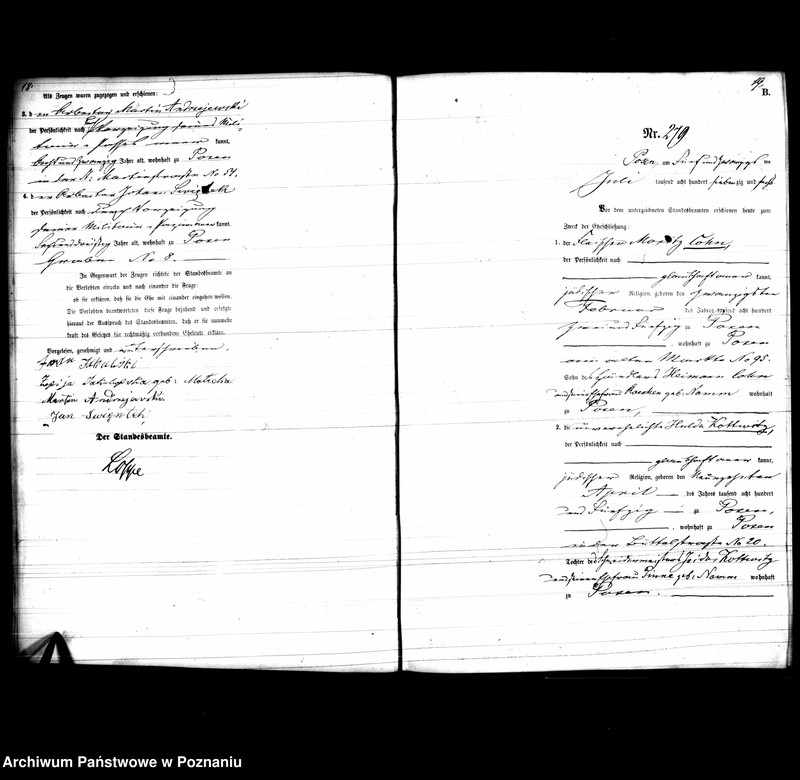 18.
Als Zeugen waren zugezogen und erschienen:
3. der Arbeiter Martin Andrzejewski
der Persönlichkeit nach durch Vorzeigung seines Mili-
kannt,
sechsundzwanzig Jahr alt, wohnhaft zu Posen
in der St. Martinstrasse No 54.
4. der Arbeiter Johann
der Persönlichkeit nach durch Vorzeigung
seiner Militair kannt,
Jahr alt, wohnhaft zu Posen
Graben No 8.
In Gegenwart der Zeugen richtete der Standesbeamte an
die Verlobten einzeln und nach einander die Frage:
ob sie erklären, daß sie die Ehe mit einander eingehen wollen.
Die Verlobten beantworteten diese Frage bejahend und erfolgte
hierauf der Ausspruch des Standesbeamten, daß er sie nunmehr
kraft des Gesetzes für rechtmäßig verbundene Eheleute erkläre.
Vorgelesen, genehmigt und unterschrieben.
Jakulski
Zofija geb: Matecka
Martin Andrzejewski
Jan Swiontek
Der Standesbeamte.
19.
B.
Nr. 279
Posen, am fünf und zwanzigsten
Juli tausend acht hundert siebenzig und sechs
Vor dem unterzeichneten Standesbeamten erschienen heute zum
Zweck der Eheschließung:
1. der Fleischer Moritz Cohn,
der Persönlichkeit nach
kannt,
jüdischer Religion, geboren den zwanzigsten
Februar des Jahres tausend acht hundert
zwei und fünfzig zu Posen
, wohnhaft zu Posen
am alten Markte No 95.
Sohn des Händlers Heimann Cohn
und geb: Namm wohnhaft
zu Posen,
2. die unverehelichte Hulda Kottwitz,
der Persönlichkeit nach
kannt,
jüdischer Religion, geboren den neunzehnten
April des Jahres tausend acht hundert
und fünfzig zu Posen,
, wohnhaft zu Posen
in der Büttelstrasse No 20.
Tochter des Schneidermeisters Isidor Kottwitz
und seiner Ehefrau Pinne geb: Namm wohnhaft
zu Posen.
Archiwum Państwowe w Poznaniu